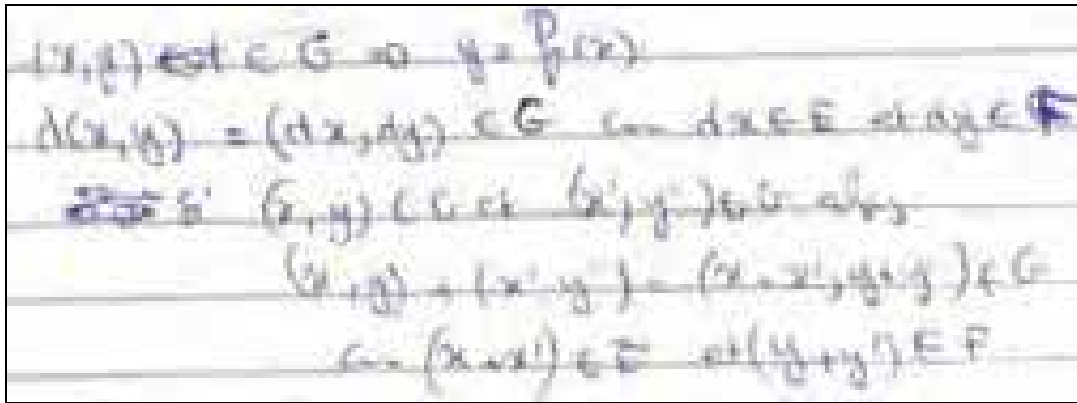 (x,y) ∈ G ⇒ y = f(x)
λ(x,y) = (λx,λy) ∈ G car λx ∈ E et λy ∈ F
Si (x,y) ∈ G et (x',y') ∈ G alors
(x,y) + (x',y') = (x+x',y+y') ∈ G
car (x+x') ∈ E et (y+y') ∈ F